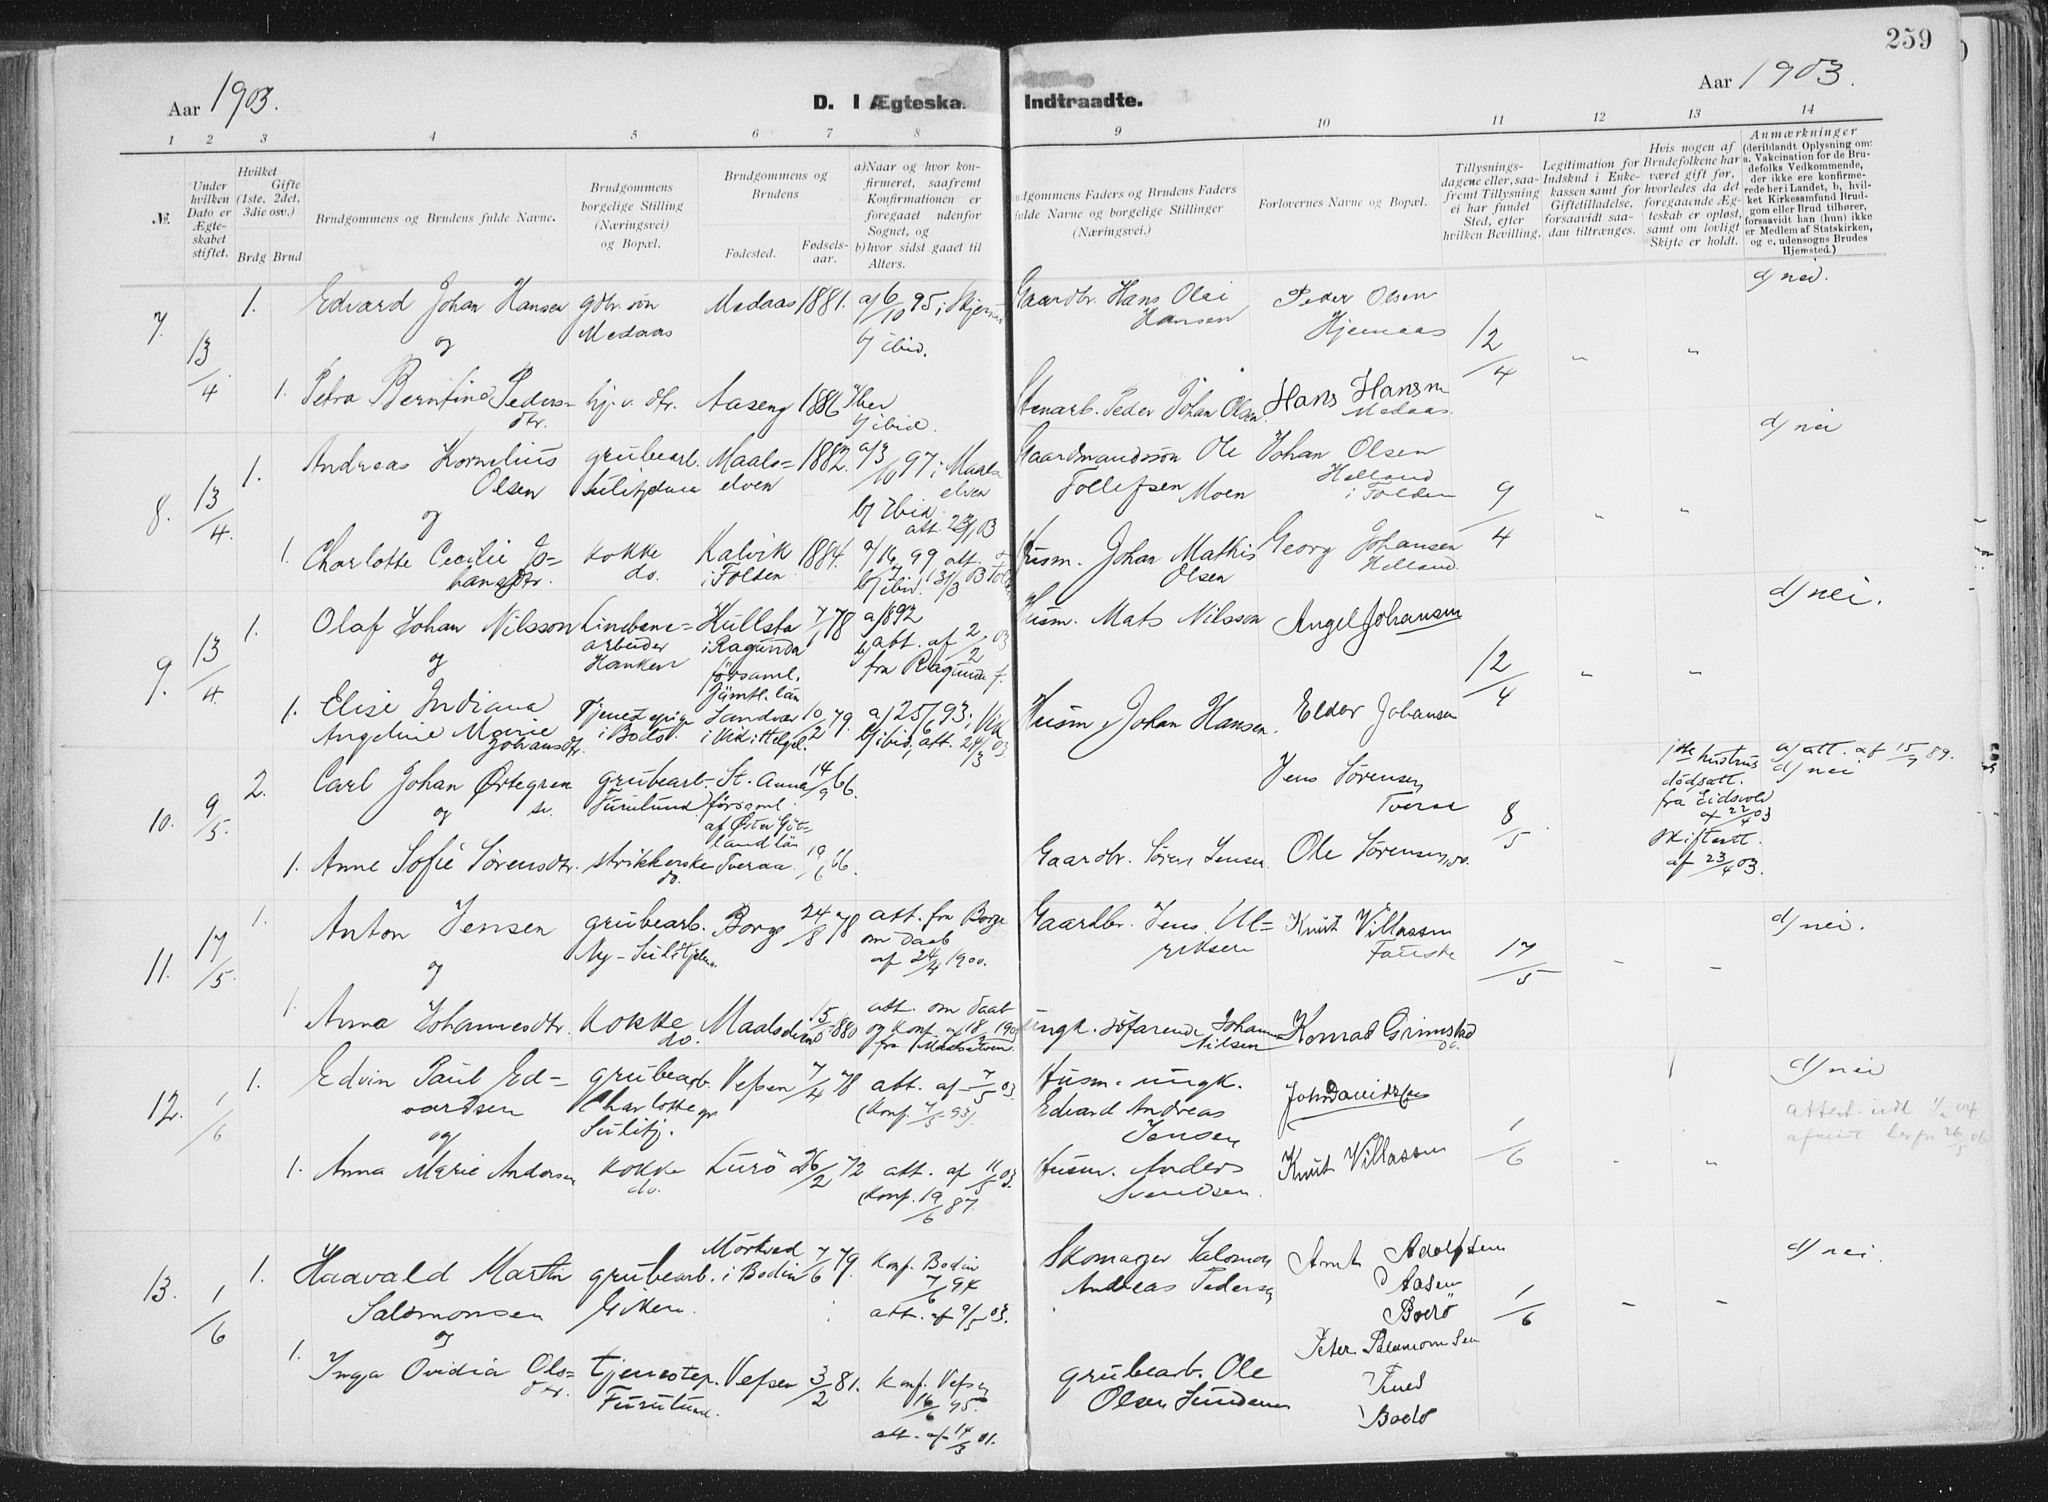 259
Aar 1903.
D. I Ægteska. Indtraadte.
Aar 1903.
1 2 3 4 5 6 7 8 9 10 11 12 13 14
№.
Under hvilken Dato er Ægteskabet stiftet.
Hvilket Gifte (1ste, 2det, 3die osv.)
Brdg Brud
Brudgommens og Brudens fulde Navne.
Brudgommens borgelige Stilling (Næringsvei) og Bopæl.
Brudgommens og Brudens
Fødested. Fødsels-aar.
a) Naar og hvor konfirmeret, saafremt Konfirmationen er foregaaet udenfor Sognet, og
b) hvor sidst gaaet til Alters.
udgommens Faders og Brudens Faders
fulde Navne og borgelige Stillinger
(Næringsvei.)
Forlovernes Navne og Bopæl.
Tillysnings-dagene eller, saafremt Tillysning ei har fundet Sted, efter hvilken Bevilling.
Legitimation for Indskud i Enkekassen samt for Giftetilladelse, forsaavidt saadan tiltrænges.
Hvis nogen af Brudefolkene har været gift før, hvorledes da det foregaaende Ægteskab er opløst, samt om lovligt Skifte er holdt.
Anmærkninger
(deriblandt Oplysning om: a. Vakcination for de Brudefolks Vedkommende, der ikke ere konfirmerede her i Landet, b, hvilket Kirkesamfund Brudgom eller Brud tilhører, forsaavidt han (hun) ikke er Medlem af Statskirken, og c, udensogns Brudes Hjemsted.)
7. 13/4 1. Edvard Johan Hansen gdbr. søn Medaas 1881. a) 6/10 95 i Skjerstad Gaardbr. Hans Olai Hansen Peder Olsen Hjemaas 12/4 " " d) nei.
og Medaas b) ibid.
1. Petra Berntine Pedersdtr. hj. v. dtr. Aaseng 1886 a) her b) ibid. Stenarb. Peder Johan Olsen. Hans Hansen Medaas.
8. 13/4. 1. Andreas Kornelius Olsen grubearb. Sulitjelma Maalselven 1882. a) 3/10 97 i Maalselven Gaardmandssøn Ole Tollefsen Moen Johan Olsen Helland i Folden 9/4 " " d) nei
og b) ibid. att. 03
1. Charlotte Cecilie Johansdtr. kokke do. Kalvik i Folden 1884. a) 16/7 99 att. b) ibid. 31/3 03 Husm. Johan Mathis Olsen Georg Johansen Helland.
9. 13/4 1. Olaf Johan Nilsson Linebanearbeider Hanken Kullsta i Ragunda församl. Jämtl. län 7/1 78 a) 892 b) att. af 2/2 03 fra Ragunda f. Husm. Mats Nilsson Angel Johansen 12/4 " " d) nei.
og
1. Elise Indiana Angeline Marie Johansdtr. Tjenestepige i Bodø. Sandvær i Vik i Helgel. 10/2 79. a) 25/6 93 i Vik b) ibid, att. 24/3 03. Husm. Johan Hansen. Eldor Johansen
10. 9/5. 2. Carl Johan Örtegren grubearb. Furulund St. Anna församl. af Öster Götland län 14/9 66. Jens Sørensen Tveraa 8/5 1ste hustrus dödsatt. fra Eidsvold af 22/4 03 Skifteatt. af 23/4 03. a) att. af 15/7 89. d) nei
og
1. Anne Sofie Sørensdtr. strikkerske do. Tveraa. 19/6 66. Gaardbr. Sören Jensen Ole Sørensen, do.
11. 17/5. 1. Anton Jensen grubearb. Ny-Sulitjelma. Borge 24/8 78 att. fra Borge om Daab af 24/4 1900. Gaardbr. Jens Ulriksen Knut Villassen Fauske 17/5 " " d) nei.
og
1. Anna Johannesdtr. kokke do. Maalselven 15/ 1880 att. om Daab og konf. af 18/ 190 fra Maalselven. ungk. søfarende Johan Nilsen Konrad Grimstad do.
12. 1/6 1. Edvin Paul Edvardsen grubearb. Charlotte gr Sulitj. Vefsen 7/4 78 att. af 7/5 03 (konf. 7/5 93). Husm. ungk. Edvard Andreas Jensen John Davidsen 1/6 " " d) nei
og attest. udt 1/
1. Anna Marie Andersen kokke do. Lurö 26/2 72 att. af 11/5 03. (konf. 19/6 87. Husm. Anders Svendsen. Knut Villassen
13. 1/6 1. Haavald Martin Salomonsen grubearb. Giken. Mörkved i Bodin 7/6 79. konf. Bodin 7/6 94 att. af 9/5 03. Skomager Salomon Andreas Pedersen Arnt Adolfsen Aasen Bodø 1/6 " " d) nei.
og
1. Inga Ovidia Olsdtr. tjenestep. Furulund. Vefsen 3/2 81. konf. Vefsn 16/6 95. att. af 14/3 01. grubearb. Ole Olsen Sundenes Peter Salamonsen Bodø